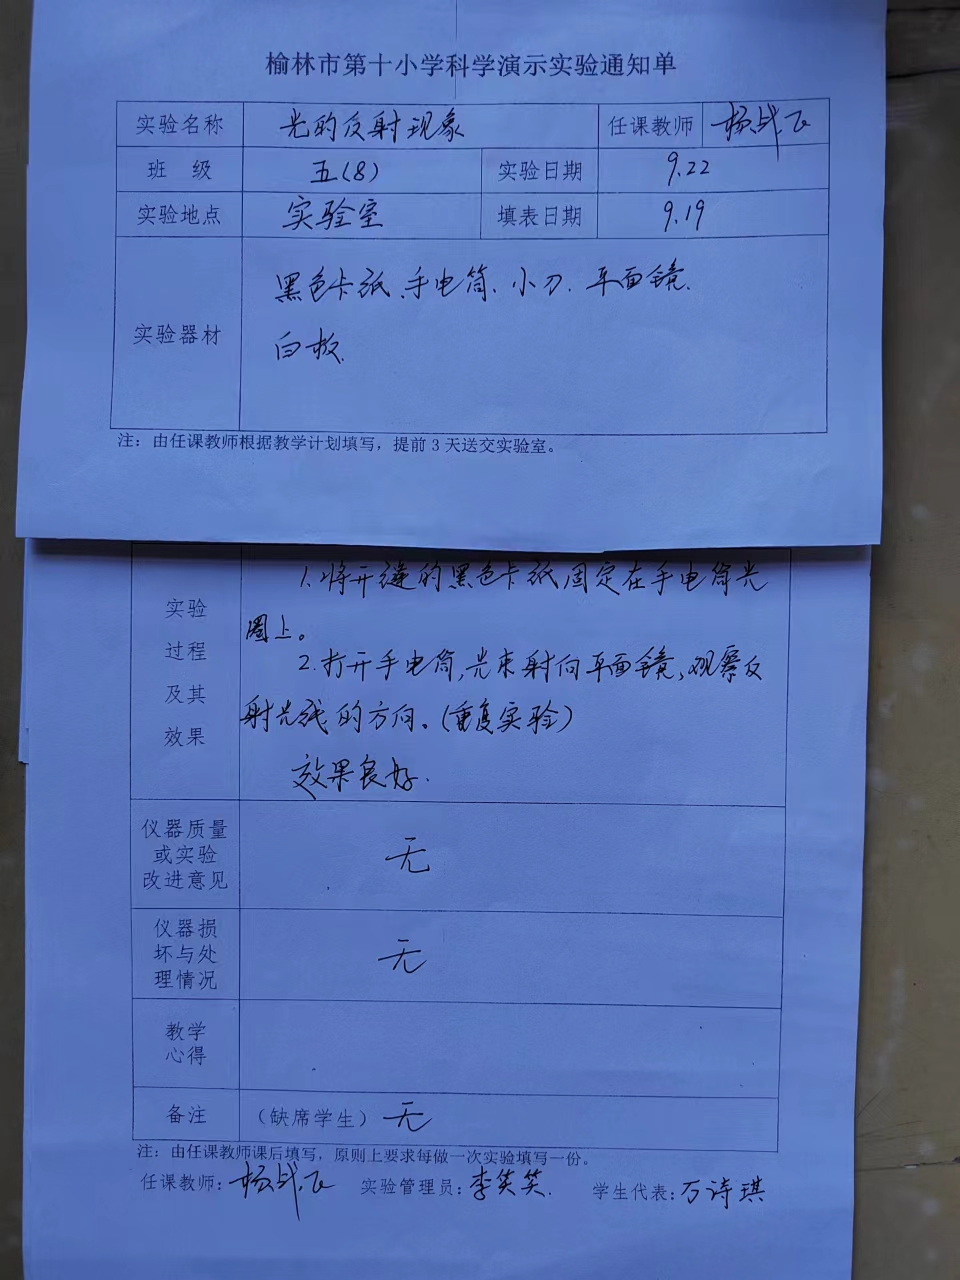 榆林市第十小学科学演示实验通知单
实验名称 光的反射现象 任课教师 杨战飞
班 级 五(8) 实验日期 9.22
实验地点 实验室 填表日期 9.19
实验器材 黑色卡纸、手电筒、小刀、平面镜、
白板.
注：由任课教师根据教学计划填写，提前3天送交实验室。
实验
过程
及其
效果
1.将开缝的黑色卡纸固定在手电筒光
圈上。
2.打开手电筒,光束射向平面镜,观察反
射光线的方向.(重复实验)
效果良好.
仪器质量
或实验
改进意见
无
仪器损
坏与处
理情况
无
教学
心得
备注 （缺席学生）无
注：由任课教师课后填写，原则上要求每做一次实验填写一份。
任课教师：杨战飞 实验管理员：李笑笑. 学生代表：万诗琪